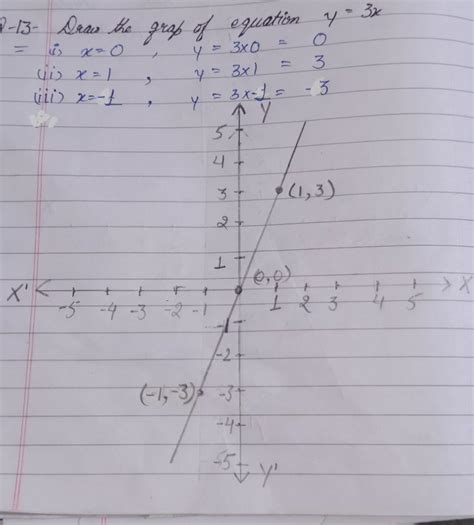 Q-13- Draw the grap of equation y = 3x
= (i) x=0 , y = 3x0 = 0
(ii) x=1 , y = 3x1 = 3
(iii) x=-1 , y = 3x-1 = -3
Y
5
4
3 (1,3)
2
1
(0,0)
X' -5 -4 -3 -2 -1 1 2 3 4 5 X
-1
-2
(-1,-3) -3
-4
-5
Y'